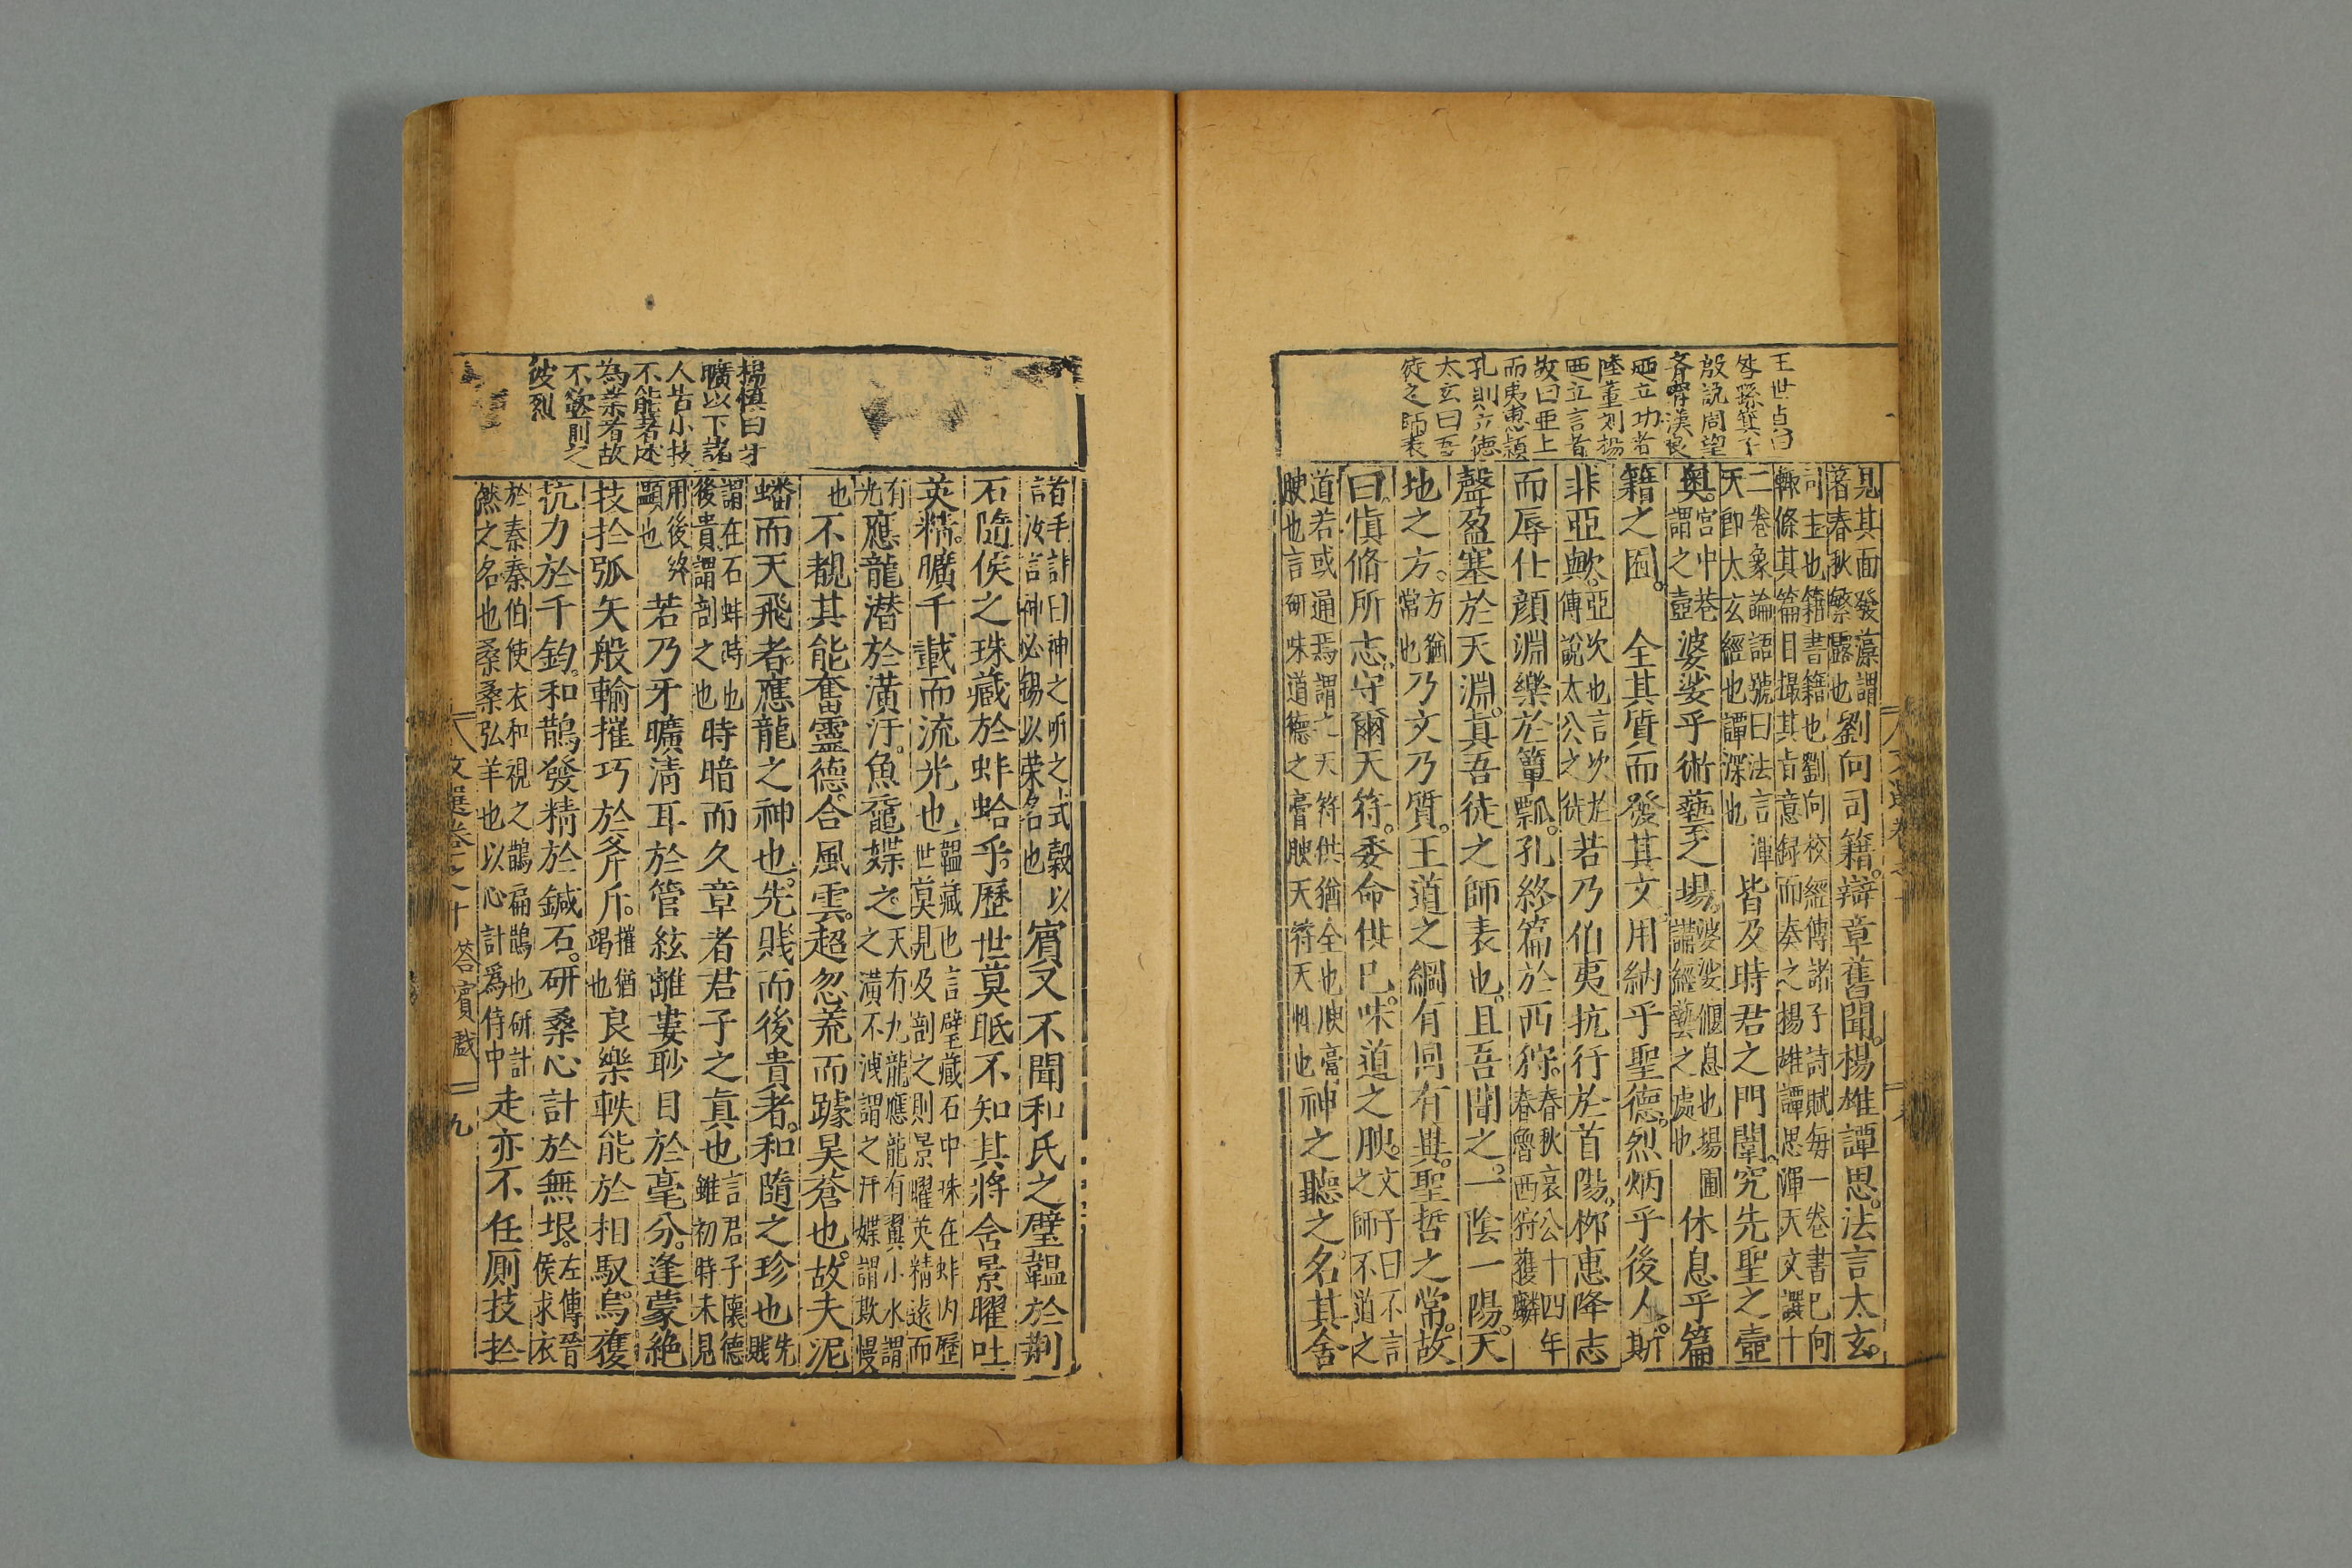 王世貞曰
咎繇箕子
殷說周望
齊甯漢良
西立功者
陸董刘揚
西立言者
故曰亞上
而夷惠顏
孔則立德
太玄曰吾
徒之師表
見其面發藻謂
著春秋繁露也
劉向司籍。辯章舊聞。楊雄譚思。法言太玄。
司主也籍書籍也劉向校經傳諸子詩賦每一卷書已向
輙條其篇目撮其㫖意録而奏之揚雄譚思渾天文譔十
二卷象論語號曰法言渾
天即太玄經也譚深也
皆及時君之門闈。究先聖之壼
奧。
宮中巷
謂之壼
婆娑乎術藝之場。
婆娑偃息也場圃
講經藝之處也
休息乎篇
籍之囿。全其質而發其文。用納乎聖德。烈炳乎後人。斯
非亞歟。
亞次也言次於
傳說太公之徒
若乃伯夷抗行於首陽。柳惠降志
而辱仕顏淵樂於簞瓢。孔終篇於西狩。
春秋哀公十四年
春魯西狩獲麟
聲盈塞於天淵。真吾徒之師表也。且吾聞之。一隂一陽。天
地之方。
方猶
常也
乃文乃質。王道之綱有同有異。聖哲之常。故
曰。慎脩所志。守爾天符。委命供已。味道之腴。
文子曰不言
之師不道之
道若或通焉謂之天符供猶全也腴膏
腴也言研味道德之膏腴天符天相也
神之聽之。名其舍
諸
毛詩曰神之聽之式穀以
汝言神必錫以荣名也
賓又不聞和氏之璧韞於荆
石隨侯之珠藏於蚌蛤乎。歷世莫眡不知其將舍景曜吐
英精。曠千載而流光也
韞藏也言壁藏石中珠在蚌内歷
世莫見及剖之則景曜英精遠而
有
光
應龍潛於潢汙。魚黿媟之。
天有九龍應龍有翼小水謂
之潢不洩謂之汙媟謂欺慢
也
不覩其能奮靈德。合風雲。超忽荒而躆昊蒼也。故夫泥
蟠而天飛者。應龍之神也。先賎而後貴者。和隨之珍也
先
賎
謂在石蚌時也
後貴謂剖之也
時暗而久章者君子之真也
言君子懷德
雖初時未見
用後終
顯也
若乃牙曠清耳於管絃離婁眇目於毫分。逢蒙絶
技扵弧矢般輸摧巧於斧斤。
摧猶
竭也
良樂軼能於相馭。烏獲
抗力於千鈞。和鵲發精於鍼石。研桑心計於無垠。
左傳晉
侯求衣
於秦秦伯使衣和視之鵲扁鵲也研計
然之名也桑桑弘羊也以心計爲侍中
走亦不任厠技扵
楊慎曰牙
曠以下諸
人皆小技
不能著述
為業者故
不欲則之
彼烈
文選卷之十 荅賓戲 九